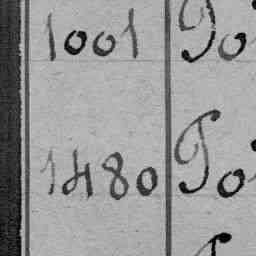 1001 Jo
1480 Jo